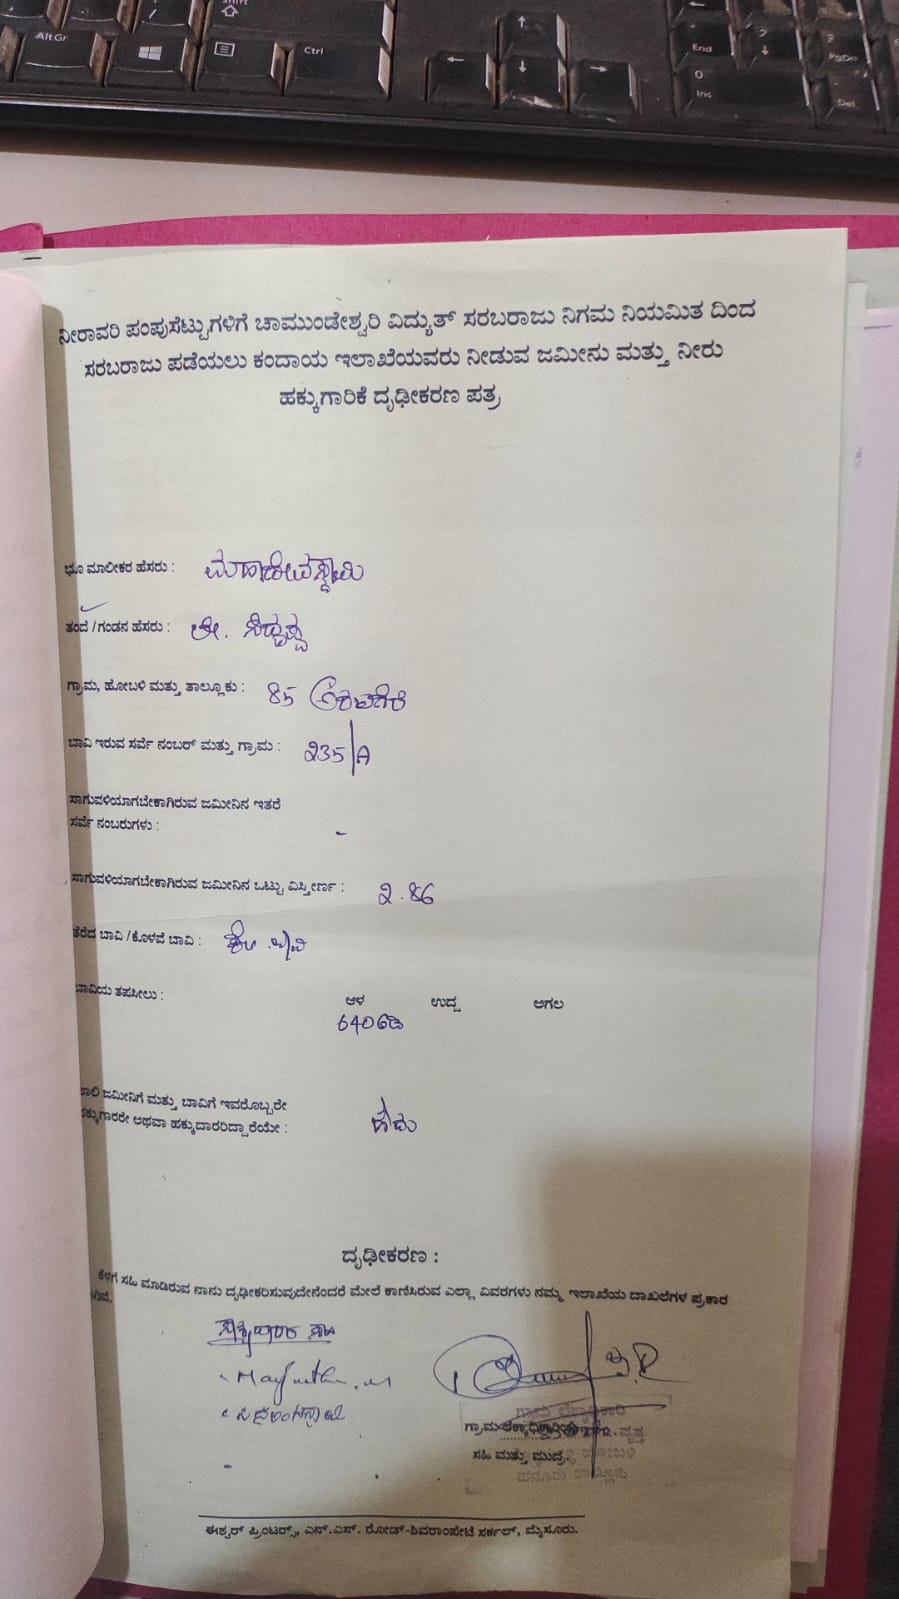 Shift
AltGr
Ctrl
End
PgDn
0
Ins
Del
ನೀರಾವರಿ ಪಂಪುಸೆಟ್ಟುಗಳಿಗೆ ಚಾಮುಂಡೇಶ್ವರಿ ವಿದ್ಯುತ್ ಸರಬರಾಜು ನಿಗಮ ನಿಯಮಿತ ದಿಂದ
ಸರಬರಾಜು ಪಡೆಯಲು ಕಂದಾಯ ಇಲಾಖೆಯವರು ನೀಡುವ ಜಮೀನು ಮತ್ತು ನೀರು
ಹಕ್ಕುಗಾರಿಕೆ ದೃಢೀಕರಣ ಪತ್ರ
ಭೂ ಮಾಲೀಕರ ಹೆಸರು : ಮಹಾದೇವಸ್ವಾಮಿ
ತಂದೆ / ಗಂಡನ ಹೆಸರು : ಲೇ. ಸಿದ್ದಪ್ಪ
ಗ್ರಾಮ, ಹೋಬಳಿ ಮತ್ತು ತಾಲ್ಲೂಕು : 85
ಬಾವಿ ಇರುವ ಸರ್ವೆ ನಂಬರ್ ಮತ್ತು ಗ್ರಾಮ : 235/A
ಸಾಗುವಳಿಯಾಗಬೇಕಾಗಿರುವ ಜಮೀನಿನ ಇತರೆ
ಸರ್ವೆ ನಂಬರುಗಳು : -
ಸಾಗುವಳಿಯಾಗಬೇಕಾಗಿರುವ ಜಮೀನಿನ ಒಟ್ಟು ವಿಸ್ತೀರ್ಣ : 2.86
ತೆರೆದ ಬಾವಿ / ಕೊಳವೆ ಬಾವಿ : ಕೊ. ಬಾವಿ
ಬಾವಿಯ ತಪಸೀಲು : ಆಳ ಉದ್ದ ಅಗಲ
640ಅಡಿ
ಜಮೀನಿಗೆ ಮತ್ತು ಬಾವಿಗೆ ಇವರೊಬ್ಬರೇ
ಹಕ್ಕುಗಾರರೇ ಅಥವಾ ಹಕ್ಕುದಾರರಿದ್ದಾರೆಯೇ : ಹೌದು
ದೃಢೀಕರಣ :
ಕೆಳಗೆ ಸಹಿ ಮಾಡಿರುವ ನಾನು ದೃಢೀಕರಿಸುವುದೇನೆಂದರೆ ಮೇಲೆ ಕಾಣಿಸಿರುವ ಎಲ್ಲಾ ವಿವರಗಳು ನಮ್ಮ ಇಲಾಖೆಯ ದಾಖಲೆಗಳ ಪ್ರಕಾರ
ಸಾಕ್ಷಿದಾರರ ಸಹಿ
ಗ್ರಾಮ ಲೆಕ್ಕಾಧಿಕಾರಿ
ಸಹಿ ಮತ್ತು ಮುದ್ರೆ.
ಹನೂರು ತಾಲ್ಲೂಕು
ಈಶ್ವರ್ ಪ್ರಿಂಟರ್ಸ್, ಎನ್.ಎಸ್. ರೋಡ್-ಶಿವರಾಂಪೇಟೆ ಸರ್ಕಲ್, ಮೈಸೂರು.